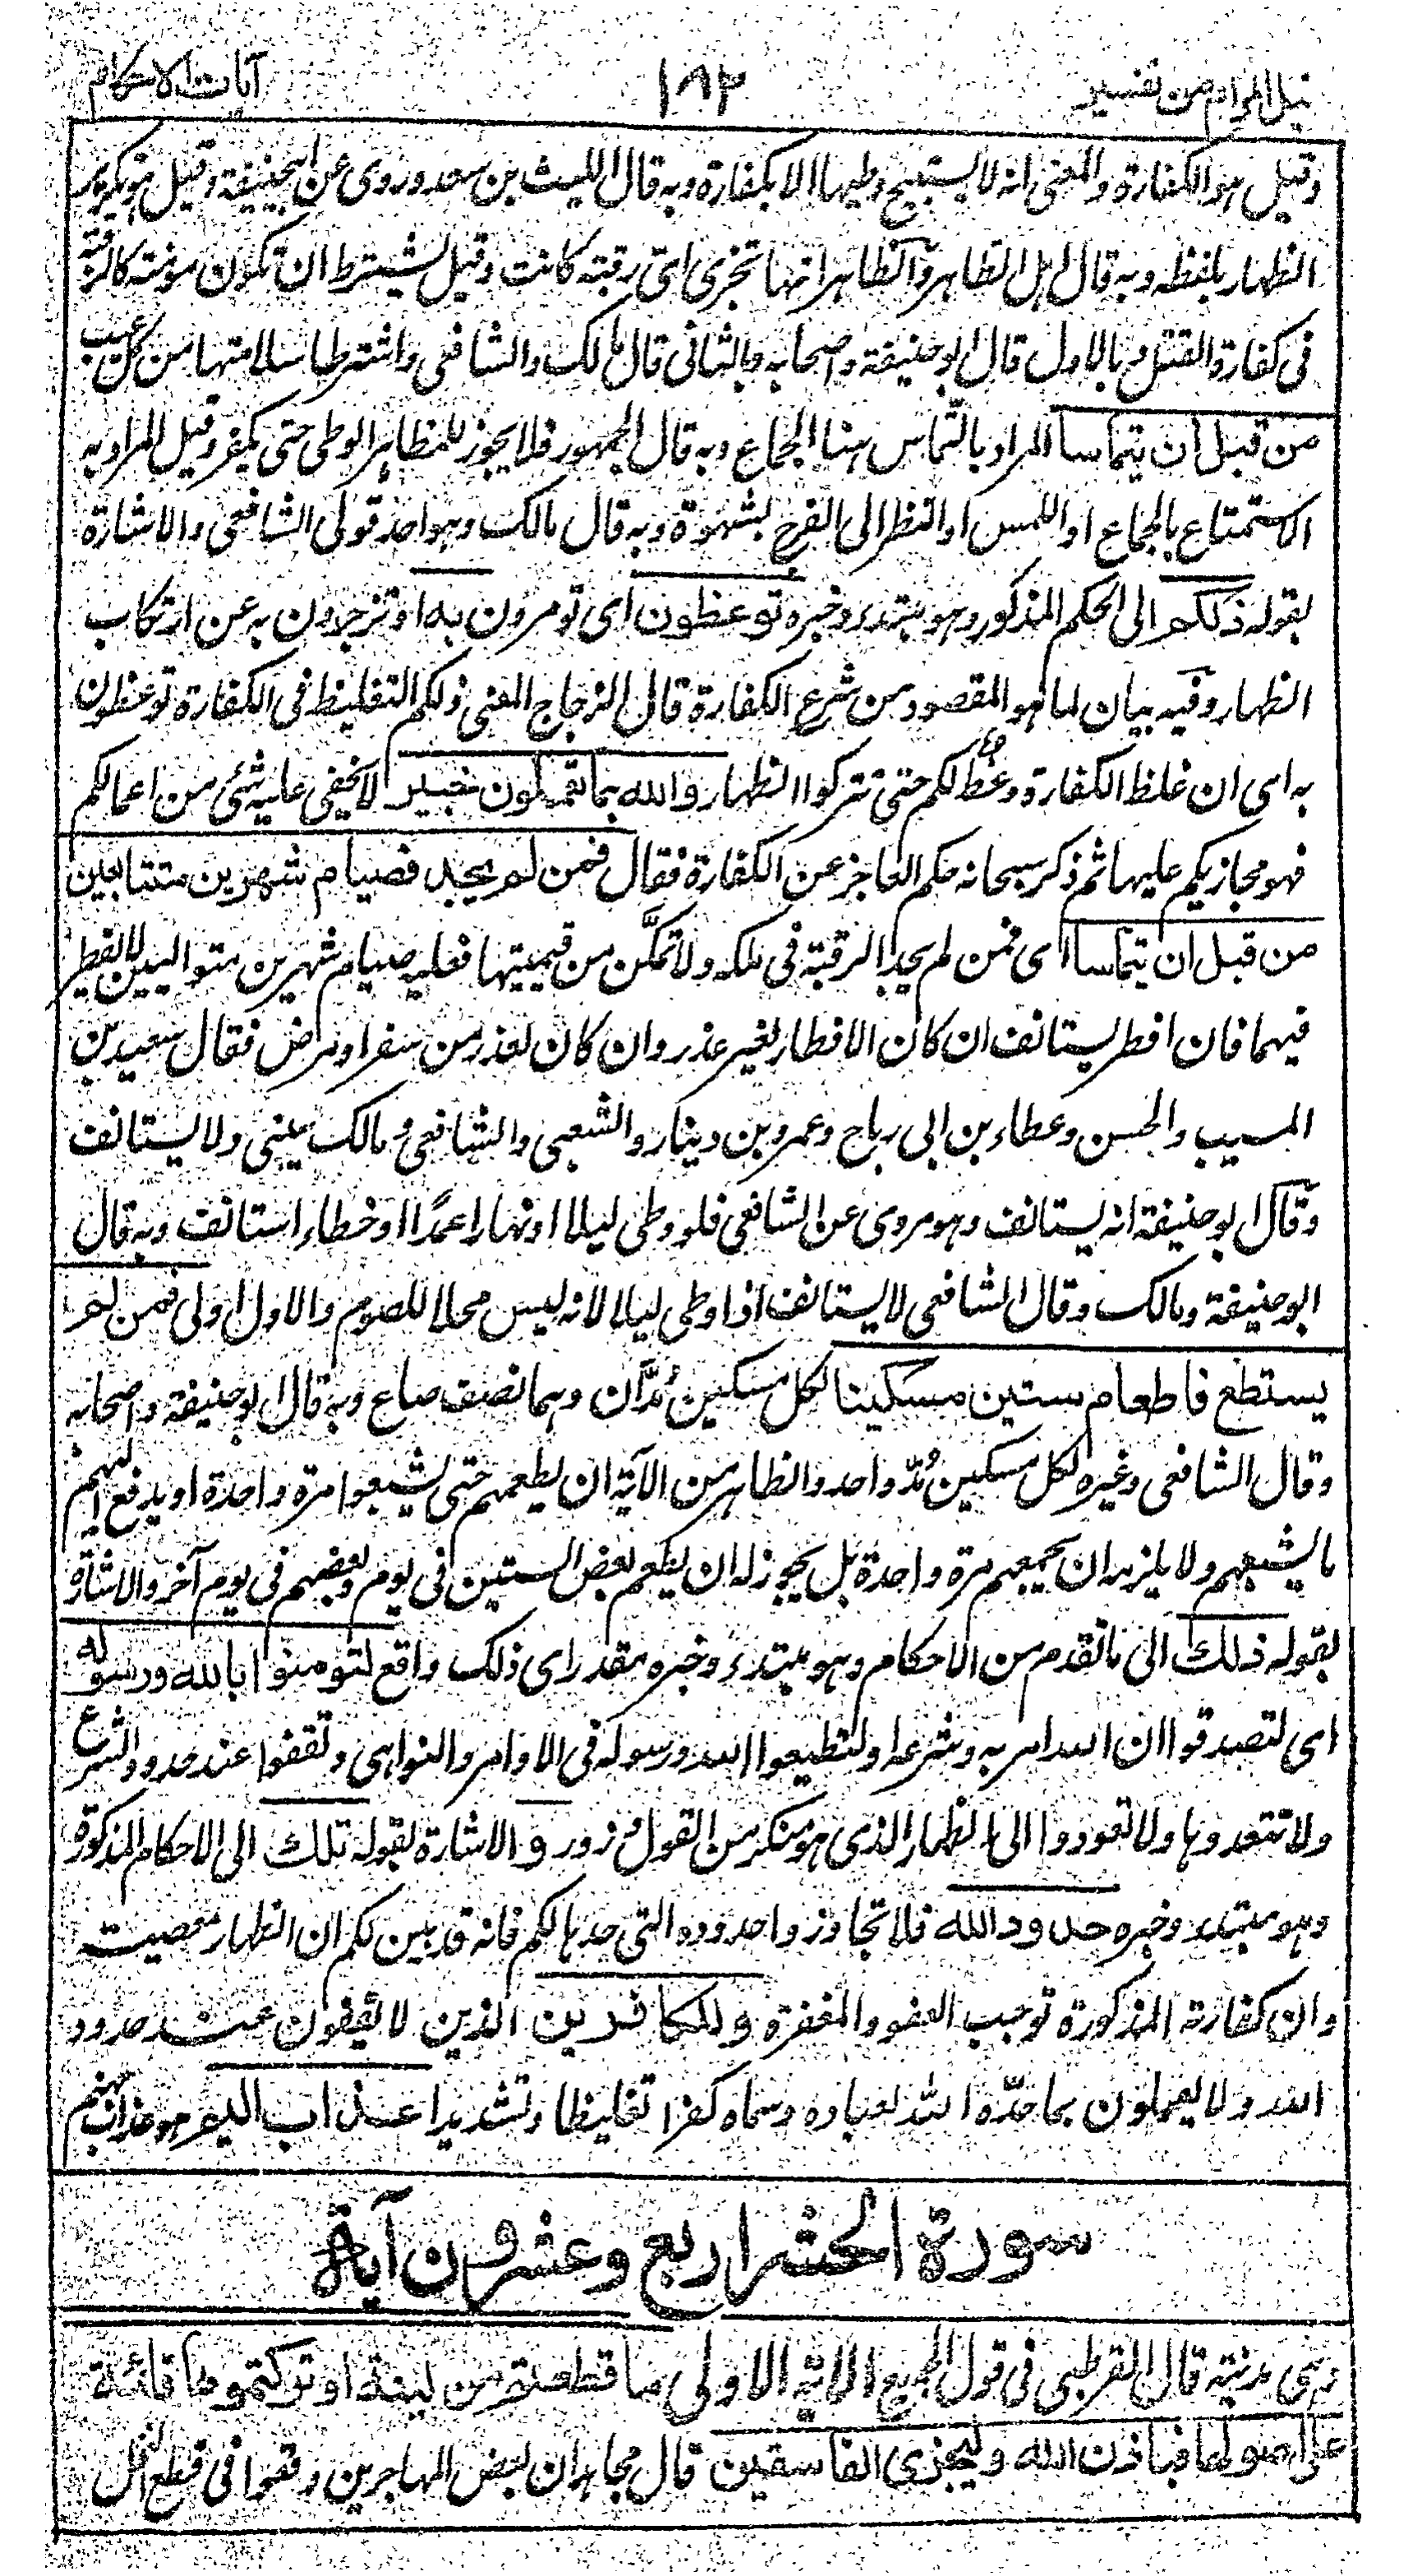 نيل المرام من تفسير ١٨٢ آيات الاحكام
وقيل هو الكفارة والمعنى انه لا يستبيح وطيها الا بكفارة وبه قال الليث بن سعد وروى عن ابيحنيفة وقيل هو تكرير
الظهار بلفظه وبه قال اهل الظاهر والظاهر انها تجزى اى رقبة كانت وقيل يشترط ان تكون مؤمنة كالرقبة
فى كفارة القتل وبالاول قال ابو حنيفة واصحابه وبالثانى قال مالك والشافعى واشترطا سلامتها من كل عيب
من قبل ان يتماسا المراد بالتماس هنا الجماع وبه قال الجمهور فلا يجوز للمظاهر الوطى حتى يكفر وقيل المراد به
الاستمتاع بالجماع او اللمس او النظر الى الفرج بشهوة وبه قال مالك وهو احد قولى الشافعى والاشارة
بقوله ذلكم الى الحكم المذكور وهو مبتدء وخبره توعظون اى تومرون به او تزجرون به عن ارتكاب
الظهار وفيه بيان لما هو المقصود من شرع الكفارة قال الزجاج المعنى ذلكم التغليظ فى الكفارة توعظون
به اى ان غلظ الكفارة وعظ لكم حتى تتركوا الظهار والله بما تعملون خبير لا يخفى عليه شئ من اعمالكم
فهو مجازيكم عليها ثم ذكر سبحانه حكم العاجز عن الكفارة فقال فمن لم يجد فصيام شهرين متتابعين
من قبل ان يتماسا اى فمن لم يجد الرقبة فى ملكه ولا تمكن من قيمتها فعليه صيام شهرين متواليين لا يفطر
فيهما فان افطر يستانف ان كان الافطار لغير عذر وان كان لعذر من سفر او مرض فقال سعيد بن
المسيب والحسن وعطاء بن ابى رباح وعمرو بن دينار والشعبى والشافعى ومالك يبنى ولا يستانف
وقال ابو حنيفة انه يستانف وهو مروى عن الشافعى فلو وطى ليلا او نهارا عمدًا او خطاء استانف وبه قال
ابو حنيفة ومالك وقال الشافعى لا يستانف اذا وطى ليلا لانه ليس محلا للصوم والاول اولى فمن لم
يستطع فاطعام ستين مسكينا لكل مسكين مُدَّان وهما نصف صاع وبه قال ابو حنيفة واصحابه
وقال الشافعى وغيره لكل مسكين مُدّ واحد والظاهر من الآية ان يطعمهم حتى يشبعوا مرة واحدة او يدفع اليهم
ما يشبعهم ولا يلزمه ان يجمعهم مرة واحدة بل يجوز له ان يطعم بعض الستين فى يوم وبعضهم فى يوم آخر والاشارة
بقوله ذلك الى ما تقدم من الاحكام وهو مبتدء وخبره مقدر اى ذلك واقع لتومنوا بالله ورسوله
اى لتصدقوا ان الله امر به وشرعه او لتطيعوا الله ورسوله فى الاوامر والنواهى وتقفوا عند حدود الشرع
ولا تتعدوها ولا تعودوا الى الظهار الذى هو منكر من القول وزور و الاشارة بقوله تلك الى الاحكام المذكورة
وهو مبتدء وخبره حدود الله فلا تجاوزوا حدوده التى حدها لكم فانه قد بين لكم ان الظهار معصيت
وان كفارته المذكورة توجب العفو والمغفرة وللكافرين الذين لا يقفون عند حدود
الله ولا يعملون بما حدّه الله لعباده وسماه كفرا تغليظا وتشديدا عذاب اليم هو عذاب جهنم
سورة الحشر اربع وعشرون آية
وهى مدنية قال القرطبى فى قول الجميع الآية الاولى ما قطعتم من لينة او تركتموها قائمة
على اصولها فباذن الله وليجزى الفاسقين قال مجاهد ان بعض المهاجرين وقعوا فى قطع النخل